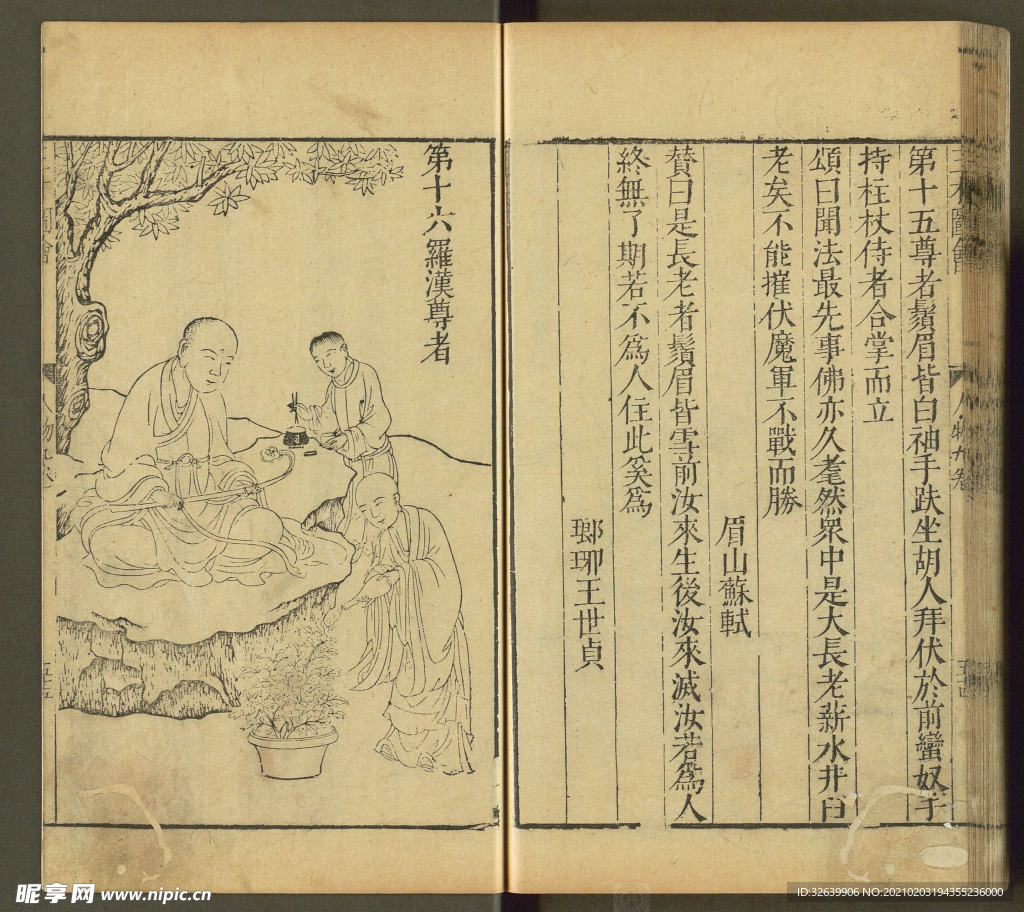 第十五尊者鬚眉皆白袖手趺坐胡人拜伏於前蠻奴手
持拄杖侍者合掌而立
頌曰聞法最先事佛亦久耄然衆中是大長老薪水井臼
老矣不能摧伏魔軍不戰而勝
眉山蘇軾
賛曰是長老者鬚眉皆雪前汝來生後汝來滅汝若爲人
終無了期若不爲人住此奚爲
瑯琊王世貞
第十六羅漢尊者
人物九卷
昵享网 www.nipic.cn
ID:32639906 NO:20210203194355236000